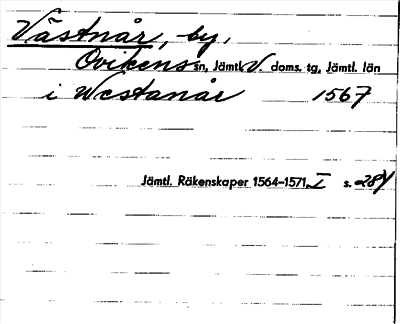 Västnår, by,
Ovikens sn, Jämtl. V. doms. tg, Jämtl. län
i Westanår 1567
Jämtl. Räkenskaper 1564–1571, I s.